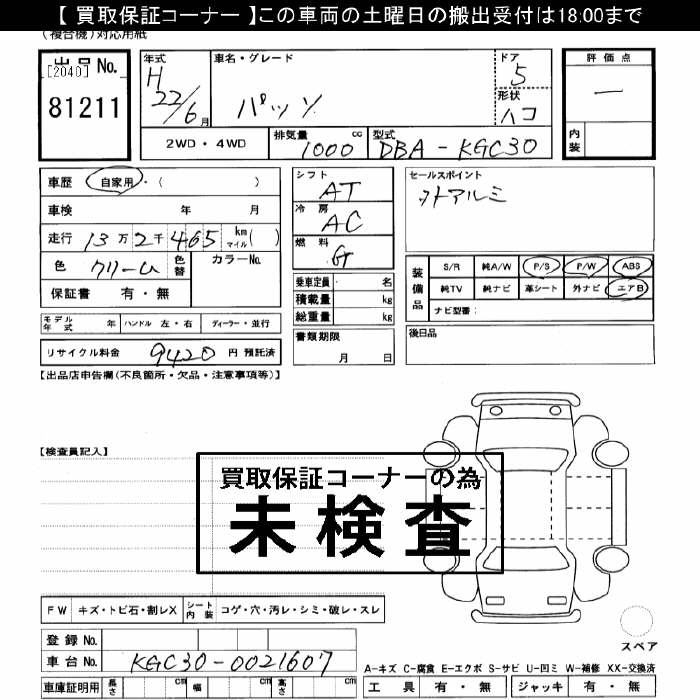 【 買取保証コーナー 】この車両の土曜日の搬出受付は18:00まで
(複合機)対応用紙
出品 No.
[2040]
81211
年式 車名・グレード ドア 評価点
H 22/6月 パッソ 5 一
形状 ハコ
2WD・4WD 排気量 1000 cc 型式 DBA-KGC30 内装
車歴 自家用・( )
車検 年 月
走行 13万2千465 km マイル( )
色 クリーム 色替 カラーNo.
保証書 有・無
シフト AT
冷房 AC
燃料 G
乗車定員 名
積載量 kg
総重量 kg
書類期限
月 日
セールスポイント
外アルミ
装備品 S/R 純A/W P/S P/W ABS
純TV 純ナビ 革シート 外ナビ エアB
ナビ型番:
後日品
モデル年式 年 ハンドル 左・右 ディーラー・並行
リサイクル料金 9420 円 預託済
【出品店申告欄(不良箇所・欠品・注意事項等)】
【検査員記入】
買取保証コーナーの為
未検査
FW キズ・トビ石・割レX シート内装 コゲ・穴・汚レ・シミ・破レ・スレ
登録 No.
車台 No. KGC30-0021607
車庫証明用 長さ cm 幅 cm 高さ cm
スペア
A-キズ C-腐食 E-エクボ S-サビ U-凹ミ W-補修 XX-交換済
工具 有・無 ジャッキ 有・無